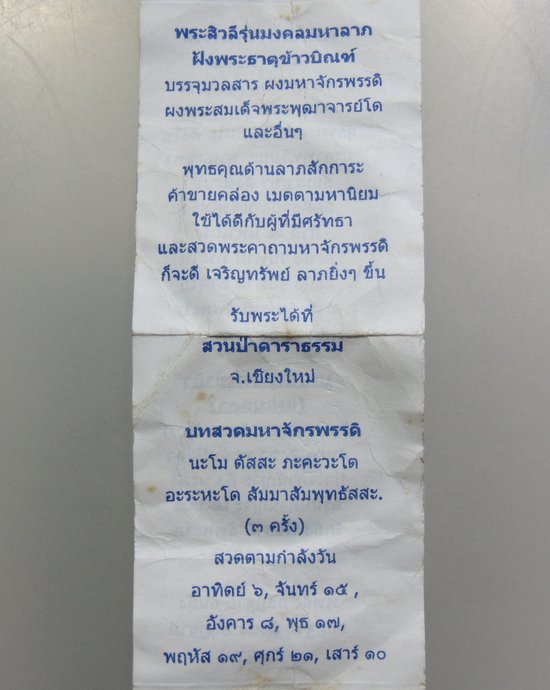 พระสิวลีรุ่นมงคลมหาลาภ
ฝังพระธาตุข้าวบิณฑ์
บรรจุมวลสาร ผงมหาจักรพรรดิ
ผงพระสมเด็จพระพุฒาจารย์โต
และอื่นๆ
พุทธคุณด้านลาภสักการะ
ค้าขายคล่อง เมตตามหานิยม
ใช้ได้ดีกับผู้ที่มีศรัทธา
และสวดพระคาถามหาจักรพรรดิ
ก็จะดี เจริญทรัพย์ ลาภยิ่งๆ ขึ้น
รับพระได้ที่
สวนป่าดาราธรรม
จ.เชียงใหม่
บทสวดมหาจักรพรรดิ
นะโม ตัสสะ ภะคะวะโต
อะระหะโต สัมมาสัมพุทธัสสะ.
(๓ ครั้ง)
สวดตามกำลังวัน
อาทิตย์ ๖, จันทร์ ๑๕ ,
อังคาร ๘, พุธ ๑๗,
พฤหัส ๑๙, ศุกร์ ๒๑, เสาร์ ๑๐